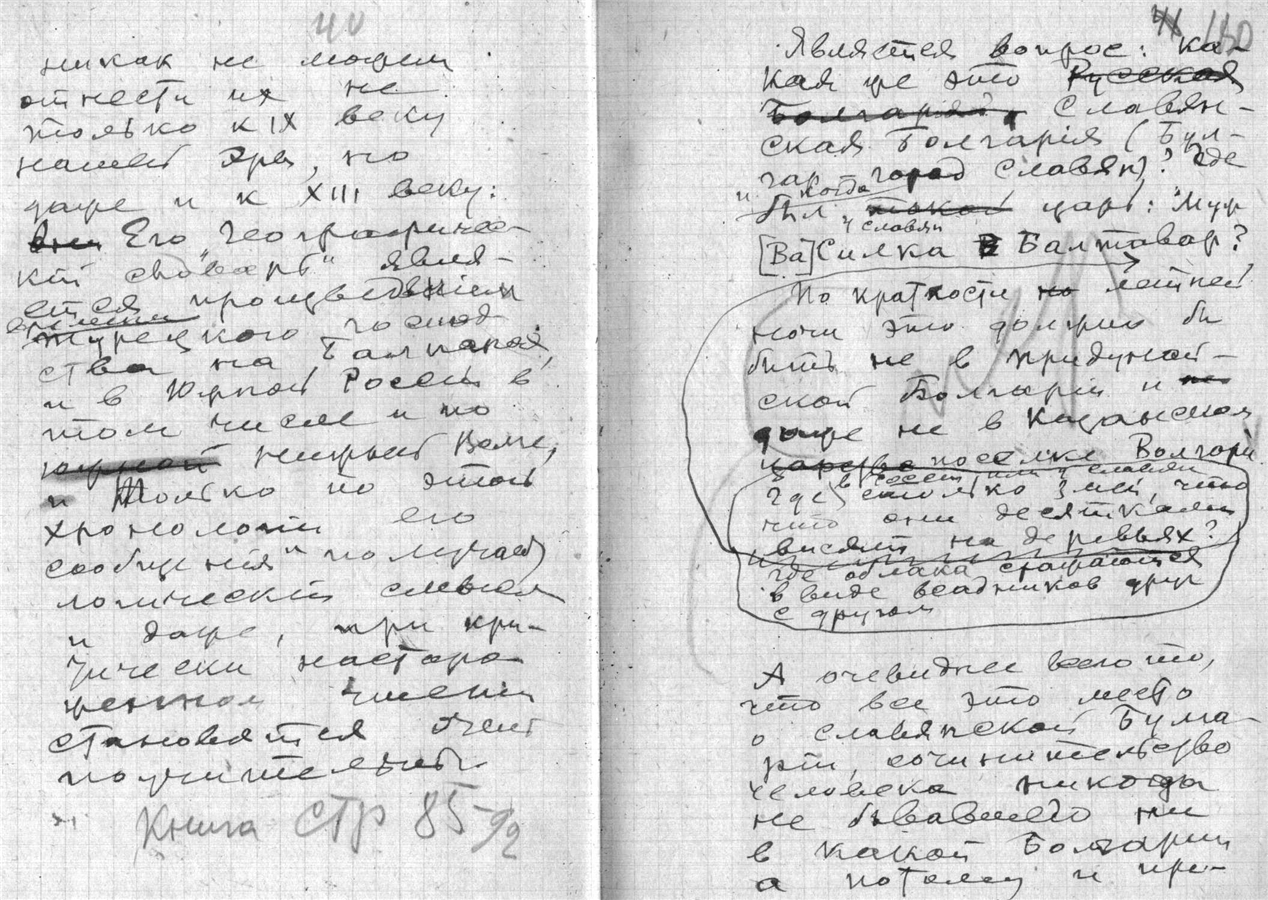 40
никак не можем
отнести их не
только к IX веку
нашей эры, но
даже и к XIII веку:
Его "Географичес-
кий словарь" явля-
ется произведением
времени
турецкого господ
ства на Балканах,
и в Южной России в
том числе и по
южной нижней Волге,
и Только по этой
хронологии его
сообщения получают
логический смысл
и даже, при кри-
тически насторо
женном чтении
становятся очень
поучительны.
Книга стр 85-92
130
Является вопрос: ка-
кая же это Русская
Болгария, Славян-
ская Болгарія (Бул-
гар город Славян)? Где
и когда
был такой царь:
у славян
[Ва]Силка В Балтавар?
По краткости но летней
ночи это должно бы
быть не в придунай-
ской Болгарии и не
даже не в Казанском
царстве поселке Волгари
где столько змей, что
что они десятками
висят на деревьях?
где облака сражаются
в виде всадников друг
с другом
А очевиднее всего то,
что все это место
о славянской Булга-
рии, сочинительство
человека никогда
не бывавшего ни
в какой Болгарии
а потому и при-